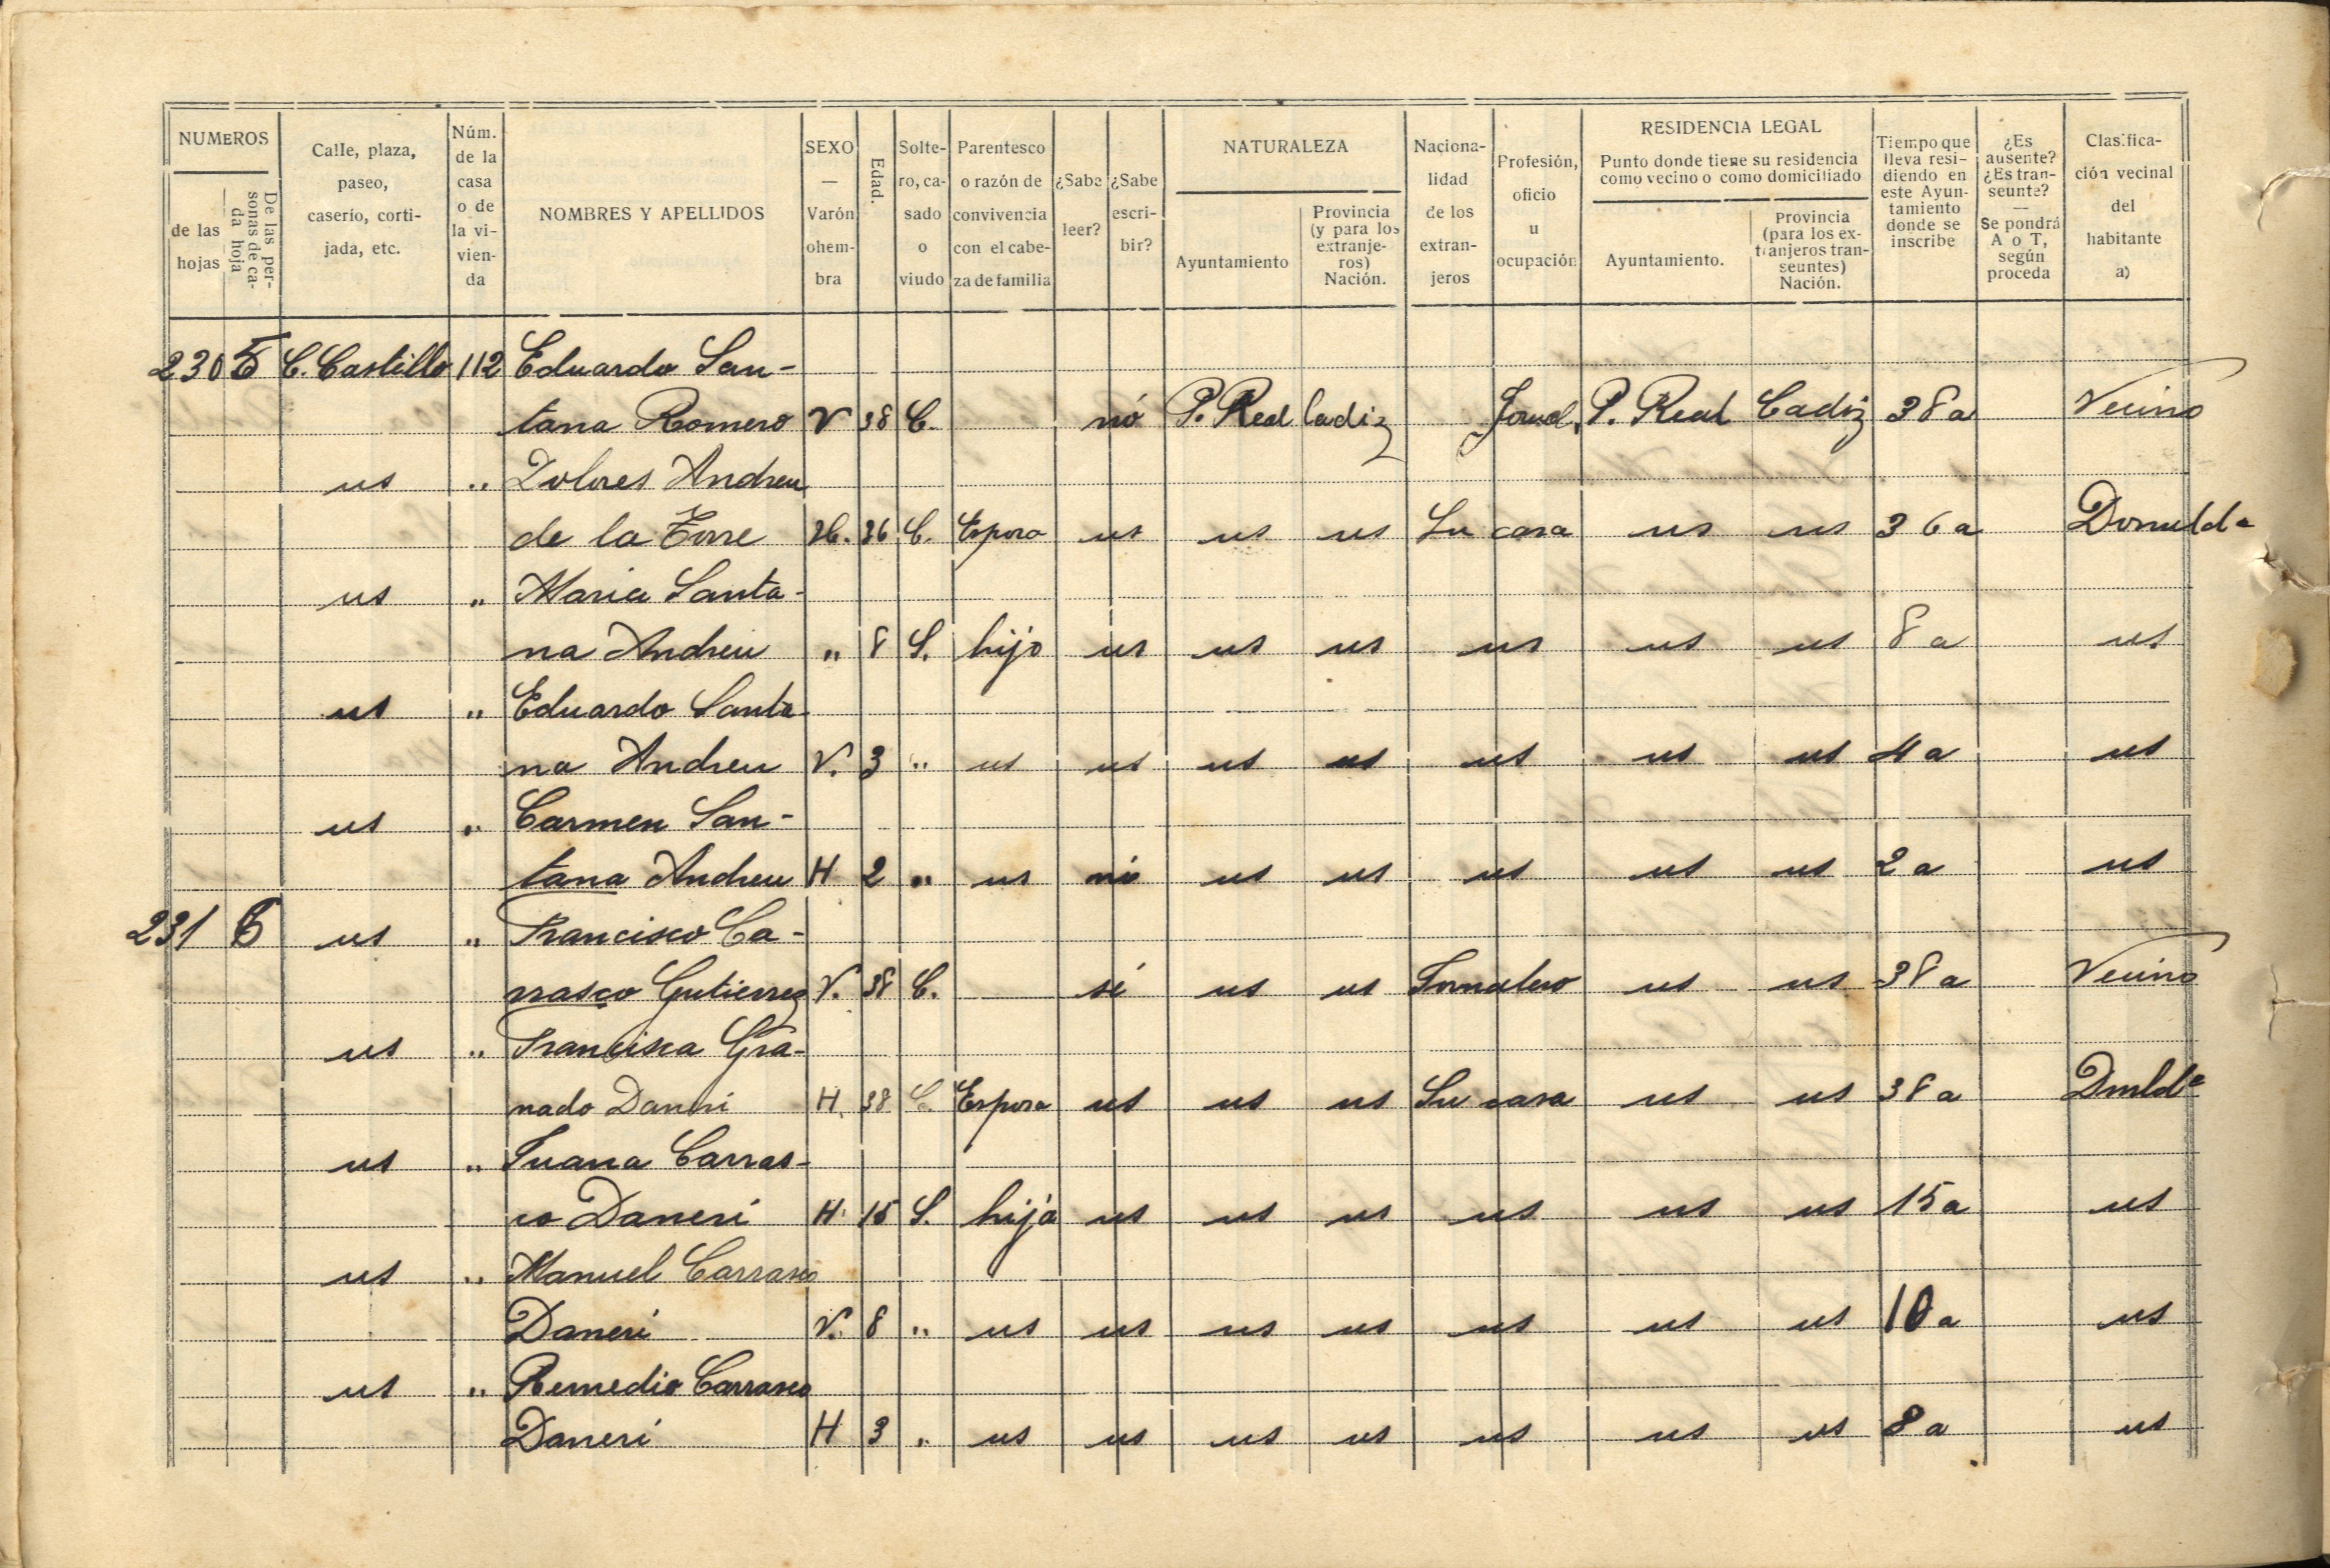 NUMEROS
de las hojas
De las personas de cada hoja
Calle, plaza, paseo, caserío, cortijada, etc.
Núm. de la casa o de la vivienda
NOMBRES Y APELLIDOS
SEXO — Varón o hembra
Edad.
Soltero, casado o viudo
Parentesco o razón de convivencia con el cabeza de familia
¿Sabe leer?
¿Sabe escribir?
NATURALEZA
Ayuntamiento
Provincia (y para los extranjeros) Nación.
Nacionalidad de los extranjeros
Profesión, oficio u ocupación
RESIDENCIA LEGAL
Punto donde tiene su residencia como vecino o como domiciliado
Ayuntamiento.
Provincia (para los extranjeros transeuntes) Nación.
Tiempo que lleva residiendo en este Ayuntamiento donde se inscribe
¿Es ausente? ¿Es transeunte? — Se pondrá A o T, según proceda
Clasificación vecinal del habitante a)
230 5 C. Castillo 112 Eduardo San-
tana Romero V 38 C. nó P. Real Cadiz Jornal. P. Real Cadiz 38 a Vecino
us " Dolores Andreu
de la Torre H. 36 C. Esposa us us us Su casa us us 36 a
us " Maria Santa-
na Andreu " 8 S. hijo us us us us us us 8 a us
us " Eduardo Santa-
na Andreu V. 3 " us us us us us us us 4 a us
us " Carmen San-
tana Andreu H 2 " us nó us us us us us 2 a us
231 us " Francisco Ca-
rrasco Gutierrez V. 38 C. sí us us Jornalero us us 38 a Vecino
us " Francisca Gra-
nado Daneri H. 38 C. Esposa us us us Su casa us us 38 a
us " Juana Carras-
co Daneri H. 15 S. hija us us us us us us 15 a us
us " Manuel Carrasco
Daneri V. 8 " us us us us us us us 10 a us
us " Remedio Carrasco
Daneri H 3 " us us us us us us us 8 a us